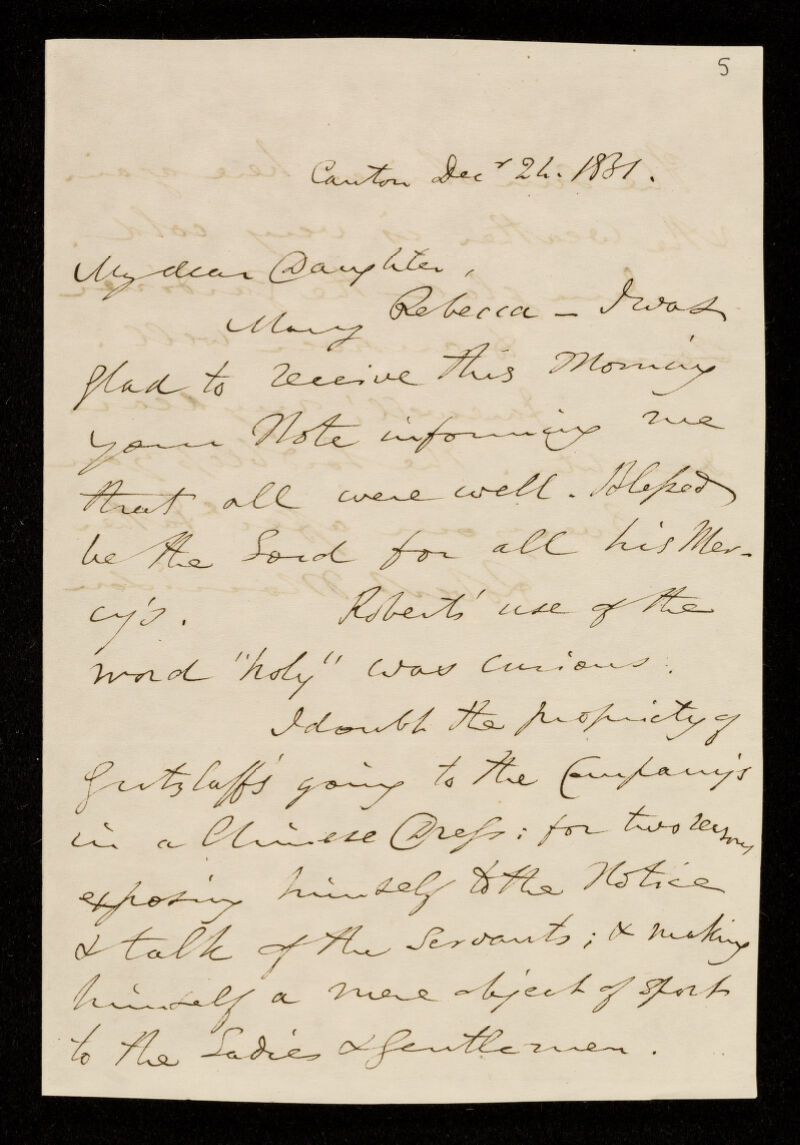 5
Canton Decr 24. 1831.
My dear Daughter,
Mary Rebecca – I was
glad to receive this Morning
your Note informing me
that all were well. Blessed
be the Lord for all his Mer-
cy's. Roberts' use of the
word "holy" was curious.
I doubt the propriety of
Gutzlaff's going to the Company's
in a Chinese Dress: for two reasons
exposing himself to the Notice
& talk of the servants; & making
himself a mere object of sport
to the Ladies & Gentlemen.